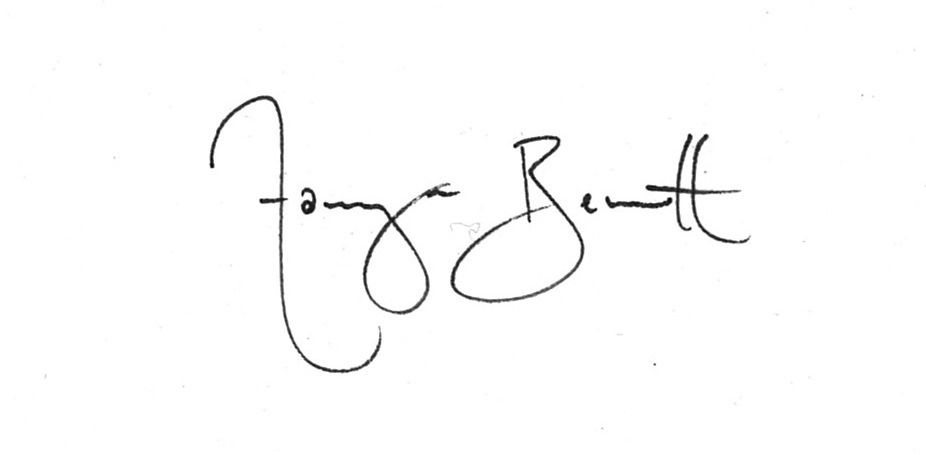 Fanya Bennett